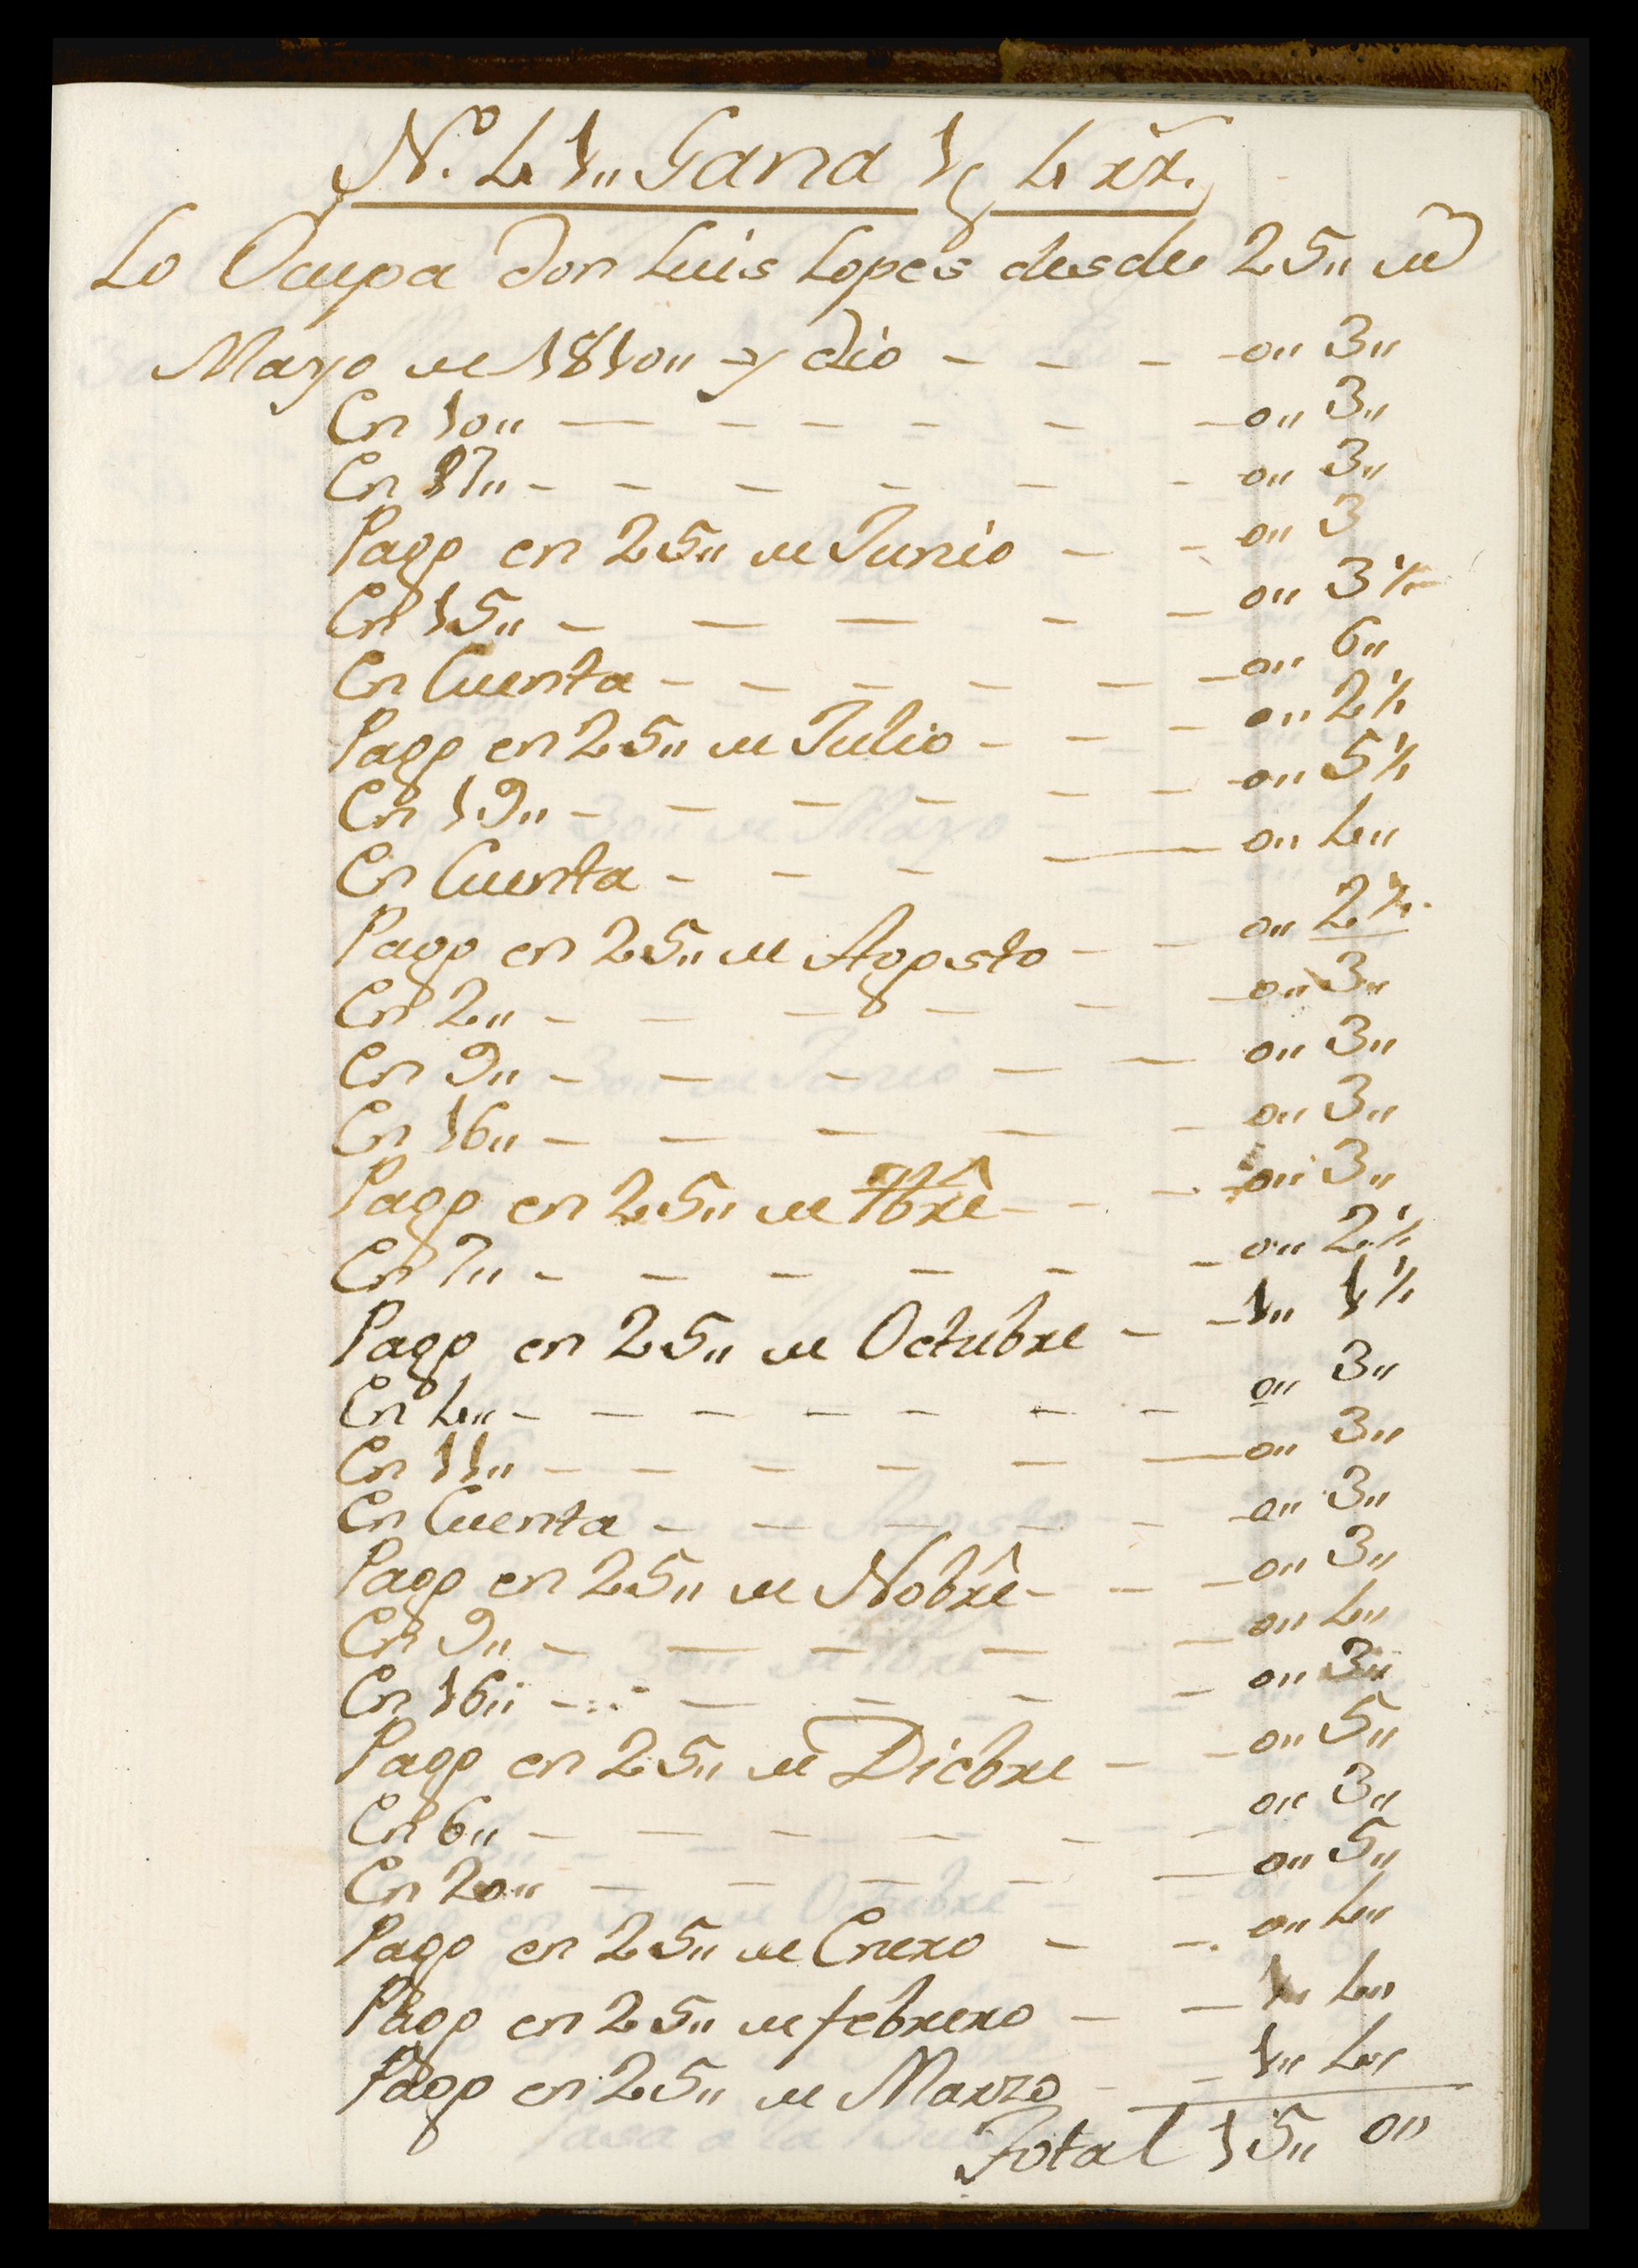 N.º 41„ Gana 1„ 4 rr.
Lo Ocupa Don Luis Lopes desde 25„ de
Mayo de 1810„ y dio - - - 0„ 3„
En 10„ - - - - - - 0„ 3„
En 17„ - - - - - - 0„ 3„
Pago en 25„ de Junio - - 0„ 3
En 15„ - - - - - 0„ 3½
En Cuenta - - - - - - 0„ 6„
Pago en 25„ de Julio - - - 0„ 2½
En 19„ - - - - - - 0„ 5½
En Cuenta - - - - 0„ 4„
Pago en 25„ de Agosto - - 0„ 2½
En 2„ - - - - - - 0„ 3„
En 9„ - - - - - 0„ 3„
En 16„ - - - - - 0„ 3„
Pago en 25„ de 7bre - - - 0„ 3„
En 7„ - - - - - - 0„ 2½
Pago en 25„ de Octubre - - 1„ 1½
En 4„ - - - - - - - 0„ 3„
En 11„ - - - - - - 0„ 3„
En Cuenta - - - - - 0„ 3„
Pago en 25„ de Nobre - - - 0„ 3„
En 9„ - - - - - - 0„ 4„
En 16„ - - - - - 0„ 3„
Pago en 25„ de Dicbre - - 0„ 5„
En 6„ - - - - - - 0„ 3„
En 20„ - - - - - 0„ 5„
Pago en 25„ de Enero - - 0„ 4„
Pago en 25„ de febrero - - 1„ 4„
Pago en 25„ de Marzo - - 1„ 4„
Total 15„ 0„